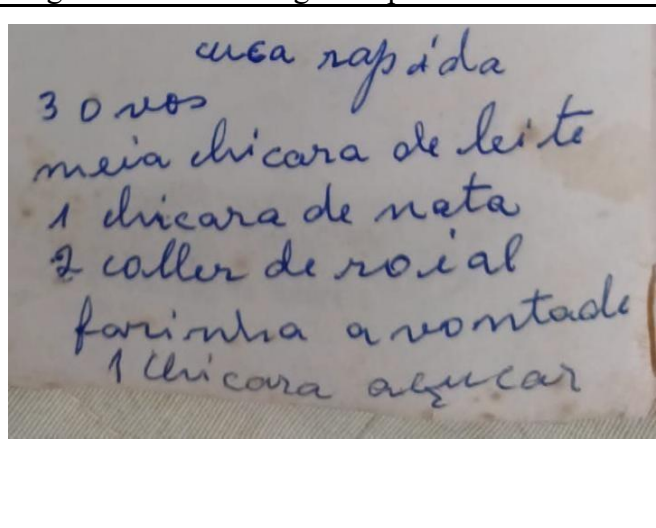 cuca rapida
3 ovos
meia chicara de leite
1 chicara de nata
2 coller de roial
farinha a vontade
1 chicara açucar